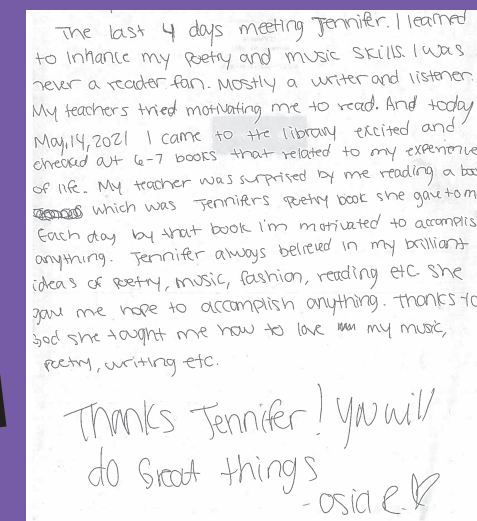 The last 4 days meeting Jennifer. I learned
to inhance my poetry and music skills. I was
never a reader fan. Mostly a writer and listener.
My teachers tried motivating me to read. And today
May, 14, 2021 I came to the library excited and
checked out 6-7 books that related to my experience
of life. My teacher was surprised by me reading a boo
which was Jennifers poetry book she gave to m
Each day by that book I'm motivated to accomplis
anything. Jennifer always believed in my brilliant
ideas of poetry, music, fashion, reading etc. She
gave me hope to accomplish anything. Thanks to
God she taught me how to love my music,
poetry, writing etc.
Thanks Jennifer! You will
do Great things
-osia e.♡